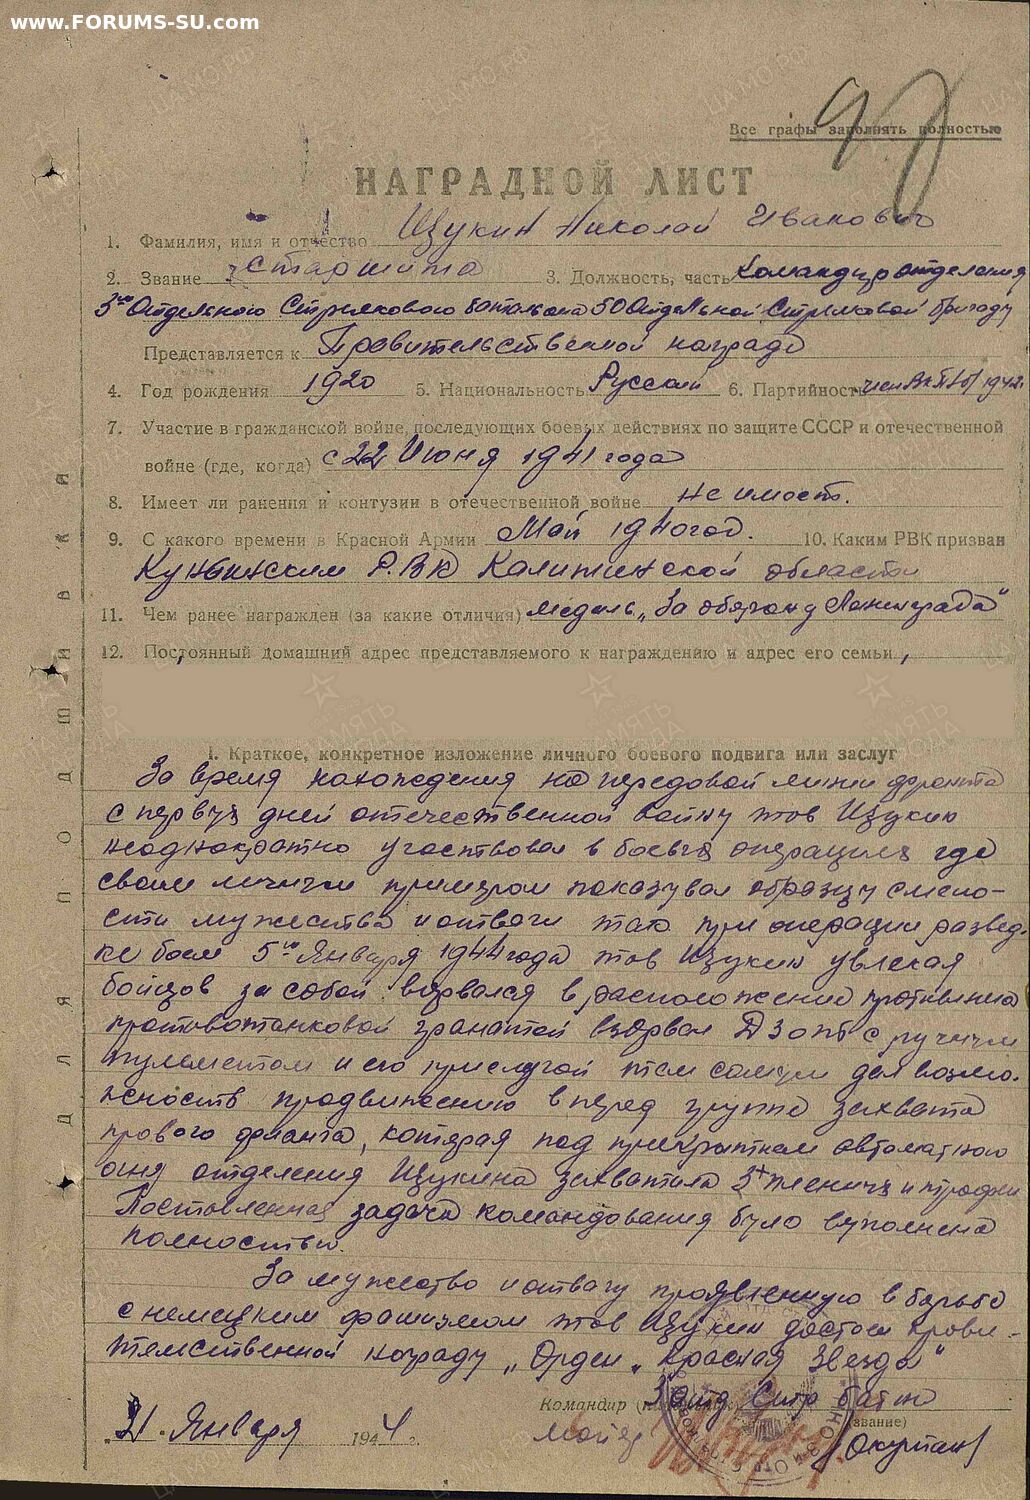 www.FORUMS-SU.com
Все графы заполнять полностью
НАГРАДНОЙ ЛИСТ
1. Фамилия, имя и отчество Щукин Николай Иванович
2. Звание Старшина 3. Должность, часть Командир отделения
3го Отдельного Стрелкового батальона 50 Отдельной Стрелковой бригады
Представляется к Правительственной награде
4. Год рождения 1920 5. Национальность Русский 6. Партийность член ВКП(б) 1942.
7. Участие в гражданской войне, последующих боевых действиях по защите СССР и отечественной
войне (где, когда) с 22 Июня 1941 года
8. Имеет ли ранения и контузии в отечественной войне не имеет.
9. С какого времени в Красной Армии Май 1940 год. 10. Каким РВК призван
Р.В.К Калининской области
11. Чем ранее награжден (за какие отличия) медаль „За оборону Ленинграда"
12. Постоянный домашний адрес представляемого к награждению и адрес его семьи
Для подшивки
I. Краткое, конкретное изложение личного боевого подвига или заслуг
За время нахождения на передовой линии фронта
с первых дней отечественной войны тов Щукин
неоднократно участвовал в боевых операциях где
своим личным примером показывал образцы смело-
сти мужества и отваги так при операции развед-
ке боем 5го Января 1944 года тов Щукин увлекая
бойцов за собой ворвался в расположение противника
противотанковой гранатой взорвал ДЗОТ с ручным
пулеметом и его прислугой тем самым дал возмо-
жность продвижению вперед группе захвата
правого фланга, которая под прикрытием автоматного
огня отделения Щукина захватила 3х пленных и трофеи
Поставленная задача командования была выполнена
полностью.
За мужество и отвагу проявленную в борьбе
с немецким фашизмом тов Щукин достоин прави-
тельственной награды „Орден „Красная Звезда"
Командир 3 отд Стр бат-на
(звание)
21. Января 1944 г. Майор /Окунман/